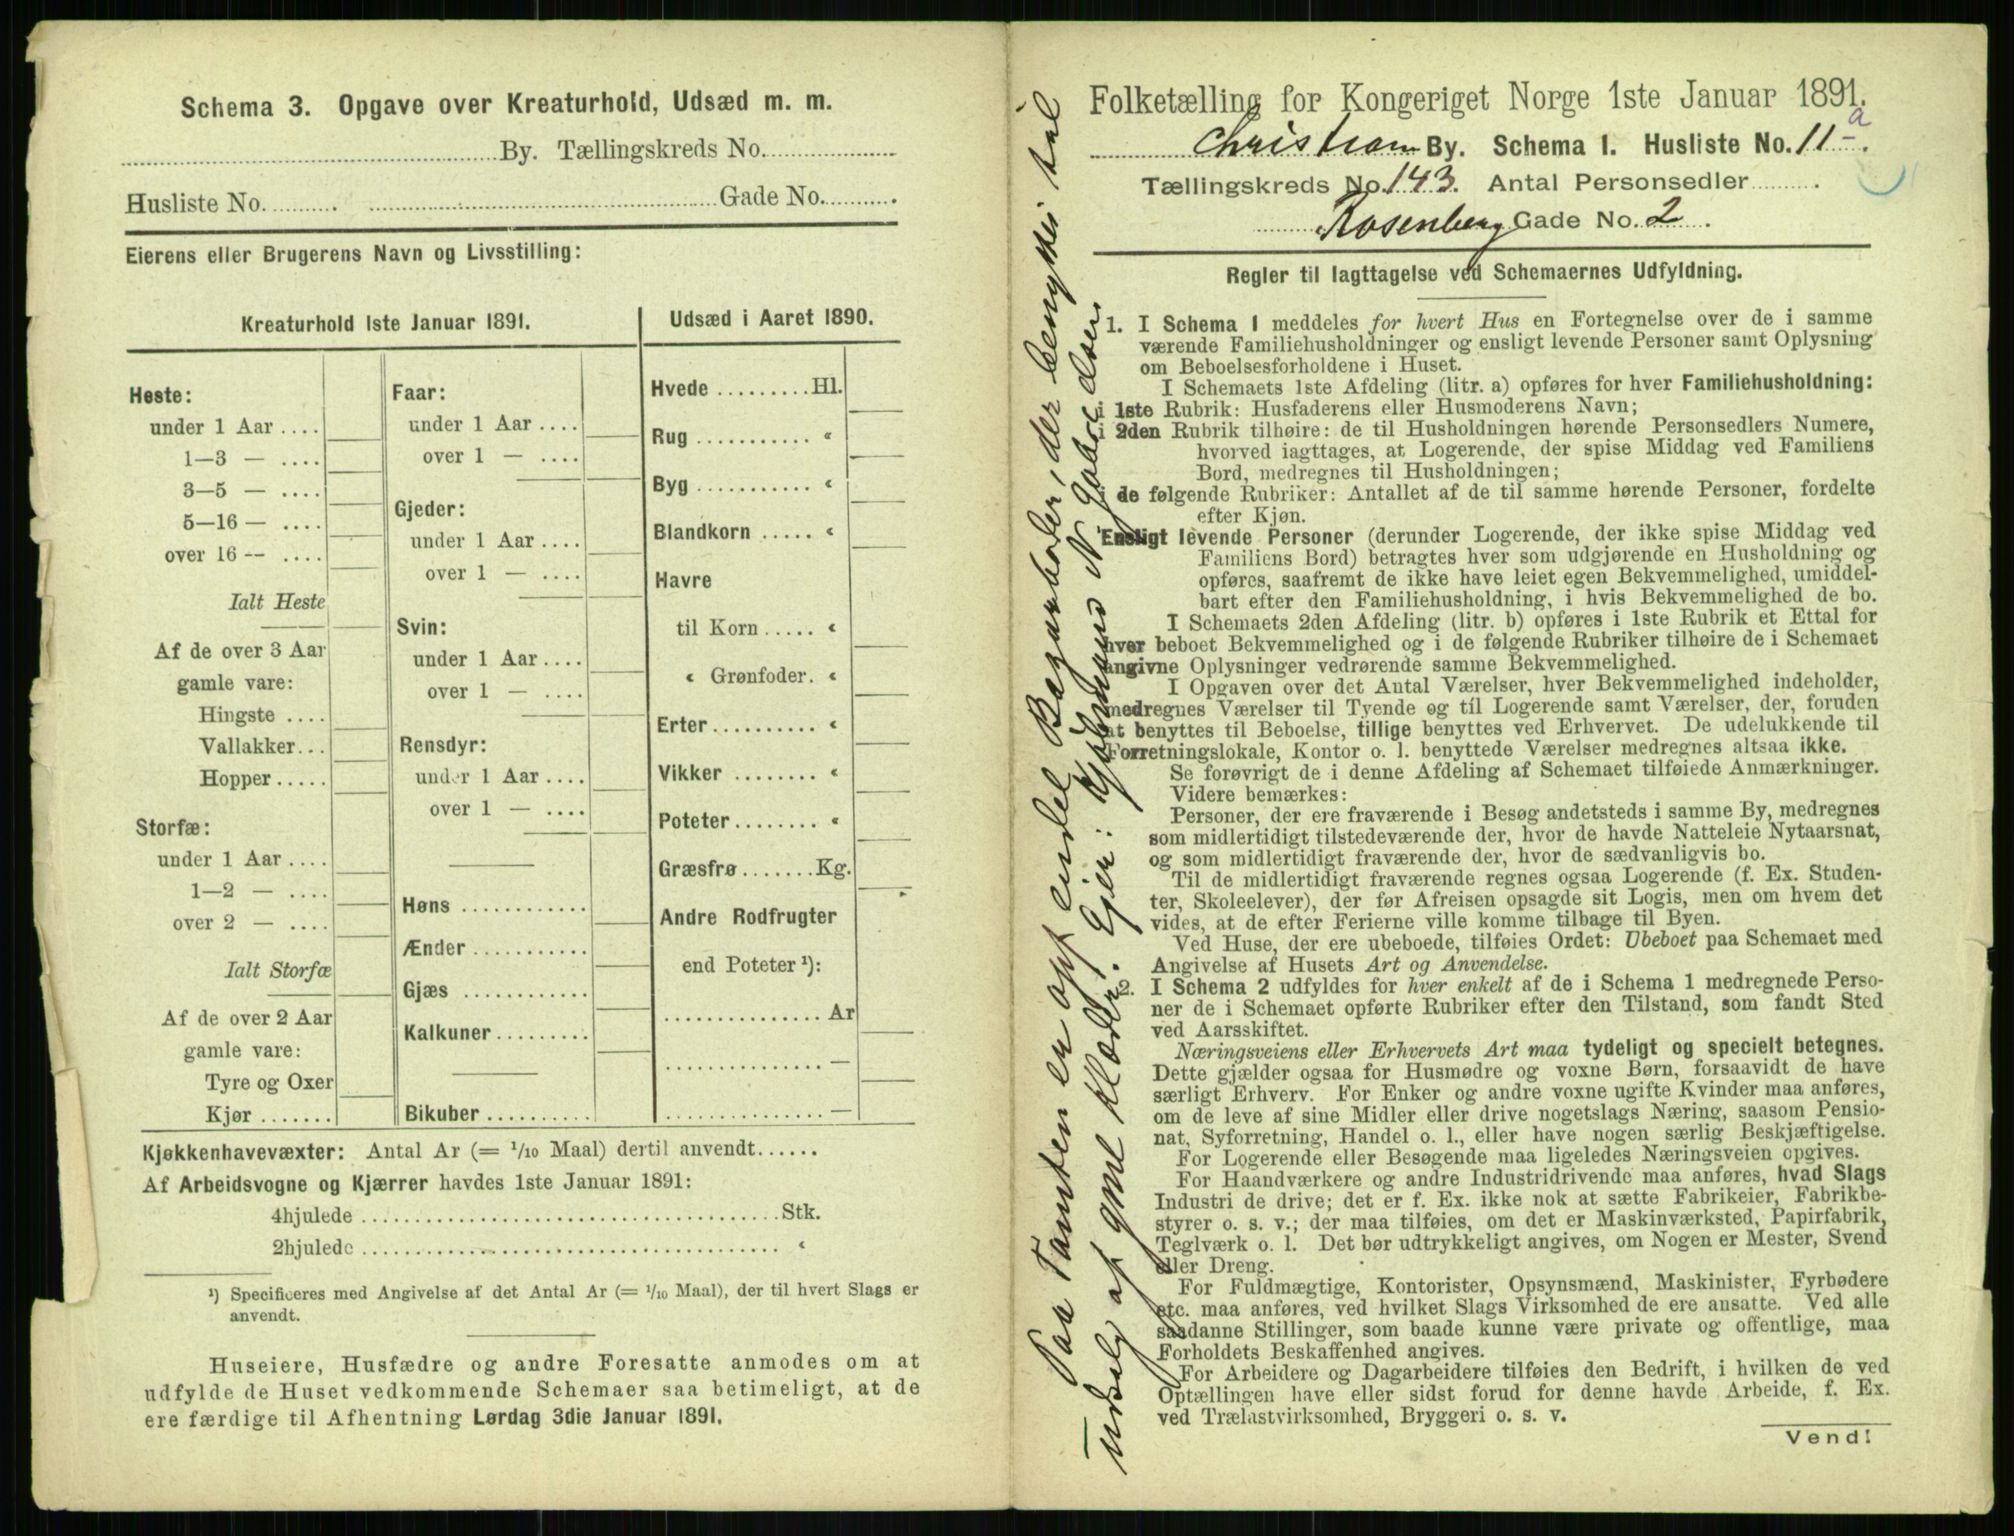 Schema 3. Opgave over Kreaturhold, Udsæd m. m.
By. Tællingskreds No.
Husliste No. Gade No.
Eierens eller Brugerens Navn og Livsstilling:
Kreaturhold 1ste Januar 1891.
Heste:
under 1 Aar ....
1—3 — ....
3—5 — ....
5—16 — ....
over 16 — ....
Ialt Heste
Af de over 3 Aar
gamle vare:
Hingste ....
Vallakker...
Hopper.....
Storfæ:
under 1 Aar ....
1—2 — ....
over 2 — ....
Ialt Storfæ
Af de over 2 Aar
gamle vare:
Tyre og Oxer
Kjør .......
Faar:
under 1 Aar ....
over 1 — ....
Gjeder:
under 1 Aar ....
over 1 — ....
Svin:
under 1 Aar ....
over 1 — ....
Rensdyr:
under 1 Aar ....
over 1 — ....
Høns ............
Ænder ...........
Gjæs ............
Kalkuner.........
Bikuber ..........
Udsæd i Aaret 1890.
Hvede .........Hl.
Rug ........... «
Byg ........... «
Blandkorn ..... «
Havre
til Korn ..... «
« Grønfoder. «
Erter.......... «
Vikker ........ «
Poteter........ «
Græsfrø .......Kg.
Andre Rodfrugter
end Poteter ¹):
............... Ar
............... —
............... —
Kjøkkenhavevæxter: Antal Ar (= 1/10 Maal) dertil anvendt......
Af Arbeidsvogne og Kjærrer havdes 1ste Januar 1891:
4hjulede ........................................Stk.
2hjulede ........................................ «
¹) Specificeres med Angivelse af det Antal Ar (= 1/10 Maal), der til hvert Slags er
anvendt.
Huseiere, Husfædre og andre Foresatte anmodes om at
udfylde de Huset vedkommende Schemaer saa betimeligt, at de
ere færdige til Afhentning Lørdag 3die Januar 1891.
Folketælling for Kongeriget Norge 1ste Januar 1891.
Christiania By. Schema 1. Husliste No. 11 a.
Tællingskreds No. 143. Antal Personsedler ........ .
Rosenberg Gade No. 2 .
Regler til Iagttagelse ved Schemaernes Udfyldning.
1. I Schema 1 meddeles for hvert Hus en Fortegnelse over de i samme
værende Familiehusholdninger og ensligt levende Personer samt Oplysning
om Beboelsesforholdene i Huset.
I Schemaets 1ste Afdeling (litr. a) opføres for hver Familiehusholdning:
i 1ste Rubrik: Husfaderens eller Husmoderens Navn;
i 2den Rubrik tilhøire: de til Husholdningen hørende Personsedlers Numere,
hvorved iagttages, at Logerende, der spise Middag ved Familiens
Bord, medregnes til Husholdningen;
i de følgende Rubriker: Antallet af de til samme hørende Personer, fordelte
efter Kjøn.
Ensligt levende Personer (derunder Logerende, der ikke spise Middag ved
Familiens Bord) betragtes hver som udgjørende en Husholdning og
opføres, saafremt de ikke have leiet egen Bekvemmelighed, umiddel-
bart efter den Familiehusholdning, i hvis Bekvemmelighed de bo.
I Schemaets 2den Afdeling (litr. b) opføres i 1ste Rubrik et Ettal for
hver beboet Bekvemmelighed og i de følgende Rubriker tilhøire de i Schemaet
angivne Oplysninger vedrørende samme Bekvemmelighed.
I Opgaven over det Antal Værelser, hver Bekvemmelighed indeholder,
medregnes Værelser til Tyende og til Logerende samt Værelser, der, foruden
at benyttes til Beboelse, tillige benyttes ved Erhvervet. De udelukkende til
Forretningslokale, Kontor o. l. benyttede Værelser medregnes altsaa ikke.
Se forøvrigt de i denne Afdeling af Schemaet tilføiede Anmærkninger.
Videre bemærkes:
Personer, der ere fraværende i Besøg andetsteds i samme By, medregnes
som midlertidigt tilstedeværende der, hvor de havde Natteleie Nytaarsnat,
og som midlertidigt fraværende der, hvor de sædvanligvis bo.
Til de midlertidigt fraværende regnes ogsaa Logerende (f. Ex. Studen-
ter, Skoleelever), der før Afreisen opsagde sit Logis, men om hvem det
vides, at de efter Ferierne ville komme tilbage til Byen.
Ved Huse, der ere ubeboede, tilføies Ordet: Ubeboet paa Schemaet med
Angivelse af Husets Art og Anvendelse.
2. I Schema 2 udfyldes for hver enkelt af de i Schema 1 medregnede Perso-
ner de i Schemaet opførte Rubriker efter den Tilstand, som fandt Sted
ved Aarsskiftet.
Næringsveiens eller Erhvervets Art maa tydeligt og specielt betegnes.
Dette gjælder ogsaa for Husmødre og voxne Børn, forsaavidt de have
særligt Erhverv. For Enker og andre voxne ugifte Kvinder maa anføres,
om de leve af sine Midler eller drive nogetslags Næring, saasom Pensio-
nat, Syforretning, Handel o. l., eller have nogen særlig Beskjæftigelse.
For Logerende eller Besøgende maa ligeledes Næringsveien opgives.
For Haandværkere og andre Industridrivende maa anføres, hvad Slags
Industri de drive; det er f. Ex. ikke nok at sætte Fabrikeier, Fabrikbe-
styrer o. s. v.; der maa tilføies, om det er Maskinværksted, Papirfabrik,
Teglværk o. l. Det bør udtrykkeligt angives, om Nogen er Mester, Svend
eller Dreng.
For Fuldmægtige, Kontorister, Opsynsmænd, Maskinister, Fyrbødere
etc. maa anføres, ved hvilket Slags Virksomhed de ere ansatte. Ved alle
saadanne Stillinger, som baade kunne være private og offentlige, maa
Forholdets Beskaffenhed angives.
For Arbeidere og Dagarbeidere tilføies den Bedrift, i hvilken de ved
Optællingen have eller sidst forud for denne havde Arbeide, f. Ex.
ved Trælastvirksomhed, Bryggeri o. s. v.
Vend!
Paa Tomten er opf. endel Bazarboder, der benyttes til
udsalg af gml klæder. Ejer: Kjøbmand N